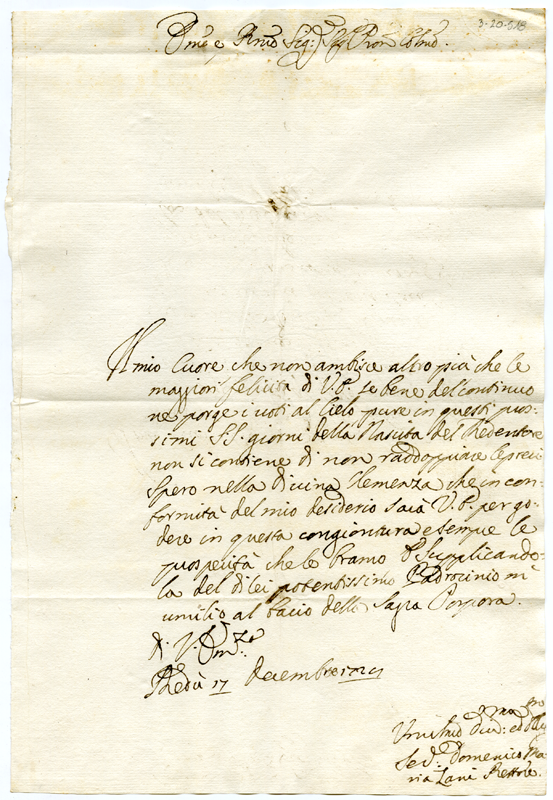 3-20-518
Eme e Rmo Sig: Sig Pron Colmo.
Il mio Cuore che non ambisce altro più che le
maggiori felicità di V.E. se bene del continuo
ne porge i voti al Cielo pure in questi pros-
simi SS. giorni della Nascita del Redentore
non si contiene di non raddoppiare le preci
Spero nella divina Clemenza che in con-
formità del mio desiderio sarà V.E. per go-
dere in questa congiontura e sempre le
prosperità che le bramo e Supplicando-
la del di lei potentissimo Padrocinio m'
umilio al bacio della Sagra Porpora.
Di V. Emza
17 Decembre
Umilmo Div: ed Obligmo
Sed. Domenico Ma
ria Lani Rettore.